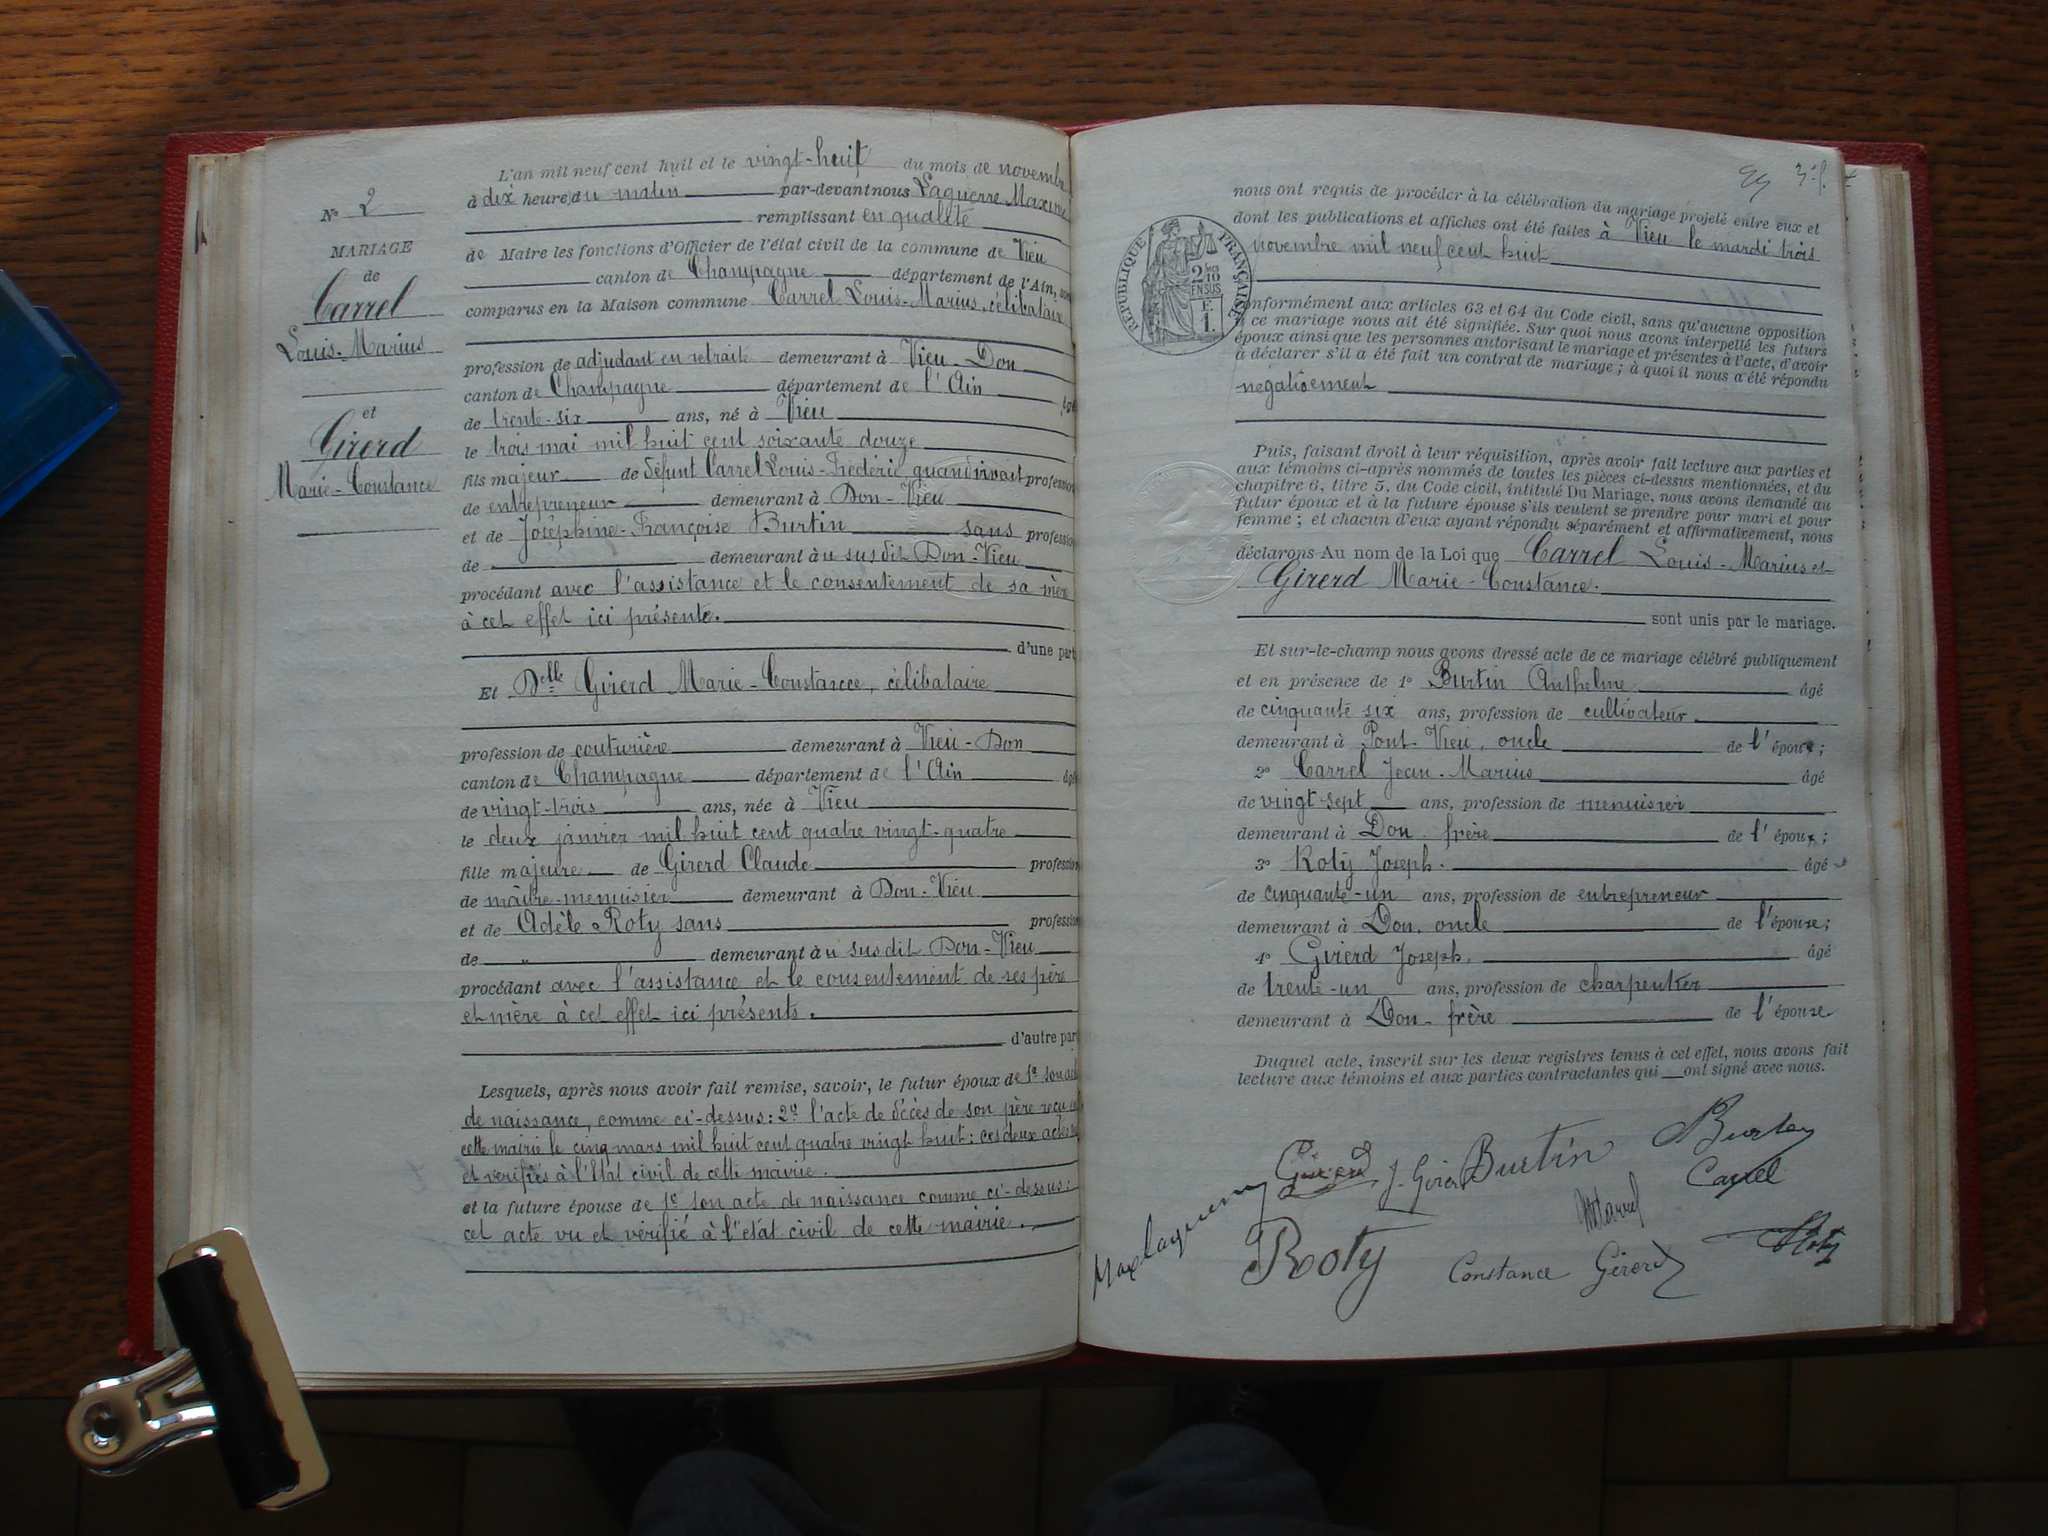 N° 2
MARIAGE
de
Carrel
Louis-Marius
et
Girerd
Marie-Constance
L'an mil neuf cent huit et le vingt-huit du mois de novembre
à dix heure du matin par-devant nous Laguerre Maxime
remplissant en qualité
de Maire les fonctions d'Officier de l'état civil de la commune de Vieu
canton de Champagne département de l'Ain, sont
comparus en la Maison commune Carrel Louis-Marius, célibataire
profession de adjudant en retraite demeurant à Vieu-Don
canton de Champagne département de l'Ain âgé
de trente-six ans, né à Vieu
le trois mai mil huit cent soixante douze
fils majeur de défunt Carrel Louis-Frédéric quand vivait profession
de entrepreneur demeurant à Don-Vieu
et de Joséphine-Françoise Burtin sans profession
de demeurant à u susdit Don-Vieu
procédant avec l'assistance et le consentement de sa mère
à cet effet ici présente.
d'une part
Et Delle Girerd Marie-Constance, célibataire
profession de couturière demeurant à Vieu-Don
canton de Champagne département de l'Ain âgée
de vingt-trois ans, née à Vieu
le deux janvier mil huit cent quatre vingt-quatre
fille majeure de Girerd Claude profession
de maître-menuisier demeurant à Don-Vieu
et de Adèle Roty sans profession
de " demeurant à u susdit Don-Vieu
procédant avec l'assistance et le consentement de ses père
et mère à cet effet ici présents.
d'autre part
Lesquels, après nous avoir fait remise, savoir, le futur époux de 1° son acte
de naissance, comme ci-dessus: 2° l'acte de décès de son père reçu
cette mairie le cinq mars mil huit cent quatre vingt huit: ces deux actes
et vérifiés à l'Etat civil de cette mairie.
et la future épouse de 1° son acte de naissance comme ci-dessus:
cet acte vu et vérifié à l'état civil de cette mairie.
RÉPUBLIQUE FRANÇAISE
2/10
EN SUS
F.
1.
nous ont requis de procéder à la célébration du mariage projeté entre eux et
dont les publications et affiches ont été faites à Vieu le mardi trois
novembre mil neuf cent huit
conformément aux articles 63 et 64 du Code civil, sans qu'aucune opposition
à ce mariage nous ait été signifiée. Sur quoi nous avons interpellé les futurs
époux ainsi que les personnes autorisant le mariage et présentes à l'acte, d'avoir
à déclarer s'il a été fait un contrat de mariage; à quoi il nous a été répondu
négativement
Puis, faisant droit à leur réquisition, après avoir fait lecture aux parties et
aux témoins ci-après nommés de toutes les pièces ci-dessus mentionnées, et du
chapitre 6, titre 5, du Code civil, intitulé Du Mariage, nous avons demandé au
futur époux et à la future épouse s'ils veulent se prendre pour mari et pour
femme; et chacun d'eux ayant répondu séparément et affirmativement, nous
déclarons Au nom de la Loi que Carrel Louis-Marius et
Girerd Marie-Constance.
sont unis par le mariage.
Et sur-le-champ nous avons dressé acte de ce mariage célébré publiquement
et en présence de 1° Burtin Anthelme âgé
de cinquante six ans, profession de cultivateur
demeurant à Pont-Vieu, oncle de l'époux;
2° Carrel Jean-Marius âgé
de vingt sept ans, profession de menuisier
demeurant à Don frère de l'époux;
3° Roty Joseph. âgé
de cinquante-un ans, profession de entrepreneur
demeurant à Don. oncle de l'épouse;
4° Girerd Joseph. âgé
de trente-un ans, profession de charpentier
demeurant à Don frère de l'épouse
Duquel acte, inscrit sur les deux registres tenus à cet effet, nous avons fait
lecture aux témoins et aux parties contractantes qui ont signé avec nous.
Girerd J. Girerd Burtin Burtin
Max Laguerre M Carrel Carrel
Roty Constance Girerd Roty